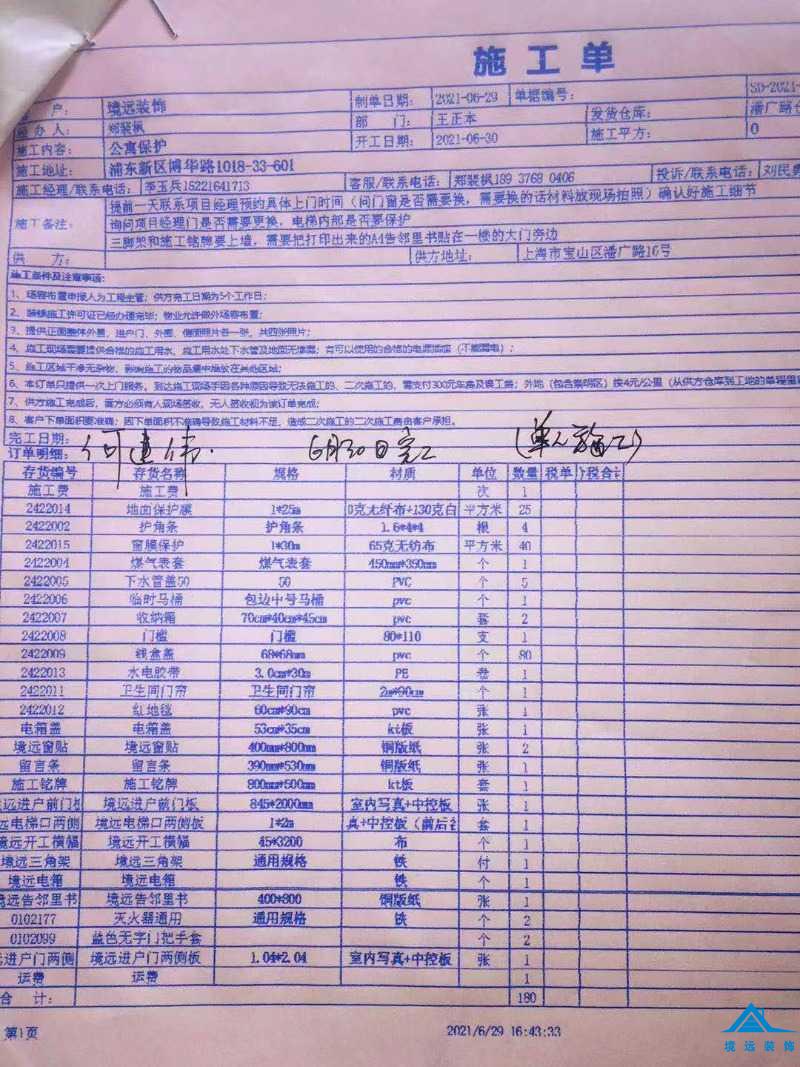 施工单
户： 境远装饰 制单日期： 2021-06-29 单据编号： SD-2021-
经办人： 郑裴枫 部 门： 王正本 发货仓库： 潘广路仓
施工内容： 公寓保护 开工日期： 2021-06-30 施工平方： 0
施工地址： 浦东新区博华路1018-33-601
施工经理/联系电话： 李玉兵15221641713 客服/联系电话： 郑裴枫189 3768 0406 投诉/联系电话： 刘民
施工备注： 提前一天联系项目经理预约具体上门时间（问门窗是否需要换，需要换的话材料放现场拍照）确认好施工细节
询问项目经理门是否需要更换，电梯内部是否要保护
三脚架和施工铭牌要上墙，需要把打印出来的A4告邻里书贴在一楼的大门旁边
供 方： 供方地址： 上海市宝山区潘广路16号
施工条件及注意事项：
1、场容布置申报人为工程主管；供方完工日期为5个工作日；
2、装修施工许可证已经办理完毕；物业允许做外场容布置；
3、提供正面整体外景、进户门、外窗、侧面照片各一张，共四张照片；
4、施工现场需要提供合格的施工用水，施工用水处下水管及地面无渗漏；有可以使用的合格的电源插座（不能漏电）；
5、施工区域干净无杂物，影响施工的物品集中堆放在其他区域；
6、本订单只提供一次上门服务，到达施工现场手因各种原因导致无法施工的，二次施工的，需支付300元车差及误工费；外地（包含崇明区）按4元/公里（从供方仓库到工地的单程里程
7、供方施工完成后，需方必须有人现场签收，无人签收视为该订单完成；
8、客户下单面积要准确；因下单面积不准确导致施工材料不足，造成二次施工的二次施工费由客户承担。
完工日期：
订单明细： 何建伟. 6月30日完工 （单人施工）
存货编号 存货名称 规格 材质 单位 数量 税单 税合计
施工费 施工费 次 1
2422014 地面保护膜 1*25m 0克无纤布+130克白 平方米 25
2422002 护角条 护角条 1.6*4*4 根 4
2422015 窗膜保护 1*30m 65克无纺布 平方米 40
2422004 煤气表套 煤气表套 450mm*350mm 个 1
2422005 下水管盖50 50 PVC 个 5
2422006 临时马桶 包边中号马桶 pvc 个 1
2422007 收纳箱 70cm*40cm*45cm pvc 套 2
2422008 门槛 门槛 80*110 支 1
2422009 线盒盖 68*68mm pvc 个 80
2422013 水电胶带 3.0cm*30m PE 卷 1
2422011 卫生间门帘 卫生间门帘 2m*90cm 个 1
2422012 红地毯 60cm*90cm pvc 张 1
电箱盖 电箱盖 53cm*35cm kt板 张 1
境远窗贴 境远窗贴 400mm*800mm 铜版纸 张 2
留言条 留言条 390mm*530mm 铜版纸 张 1
施工铭牌 施工铭牌 800mm*500mm kt板 套 1
远进户前门板 境远进户前门板 845*2000mm 室内写真+中控板 张 1
远电梯口两侧 境远电梯口两侧板 1*2m 真+中控板（前后各 套 1
境远开工横幅 境远开工横幅 45*3200 布 个 1
境远三角架 境远三角架 通用规格 铁 付 1
境远电箱 境远电箱 铁 个 1
境远告邻里书 境远告邻里书 400*800 铜版纸 张 1
0102177 灭火器通用 通用规格 铁 个 2
0102099 蓝色无字门把手套 个 2
远进户门两侧 境远进户门两侧板 1.04*2.04 室内写真+中控板 张 1
运费 运费 1
合 计： 180
第1页 2021/6/29 16:43:33
境远装饰